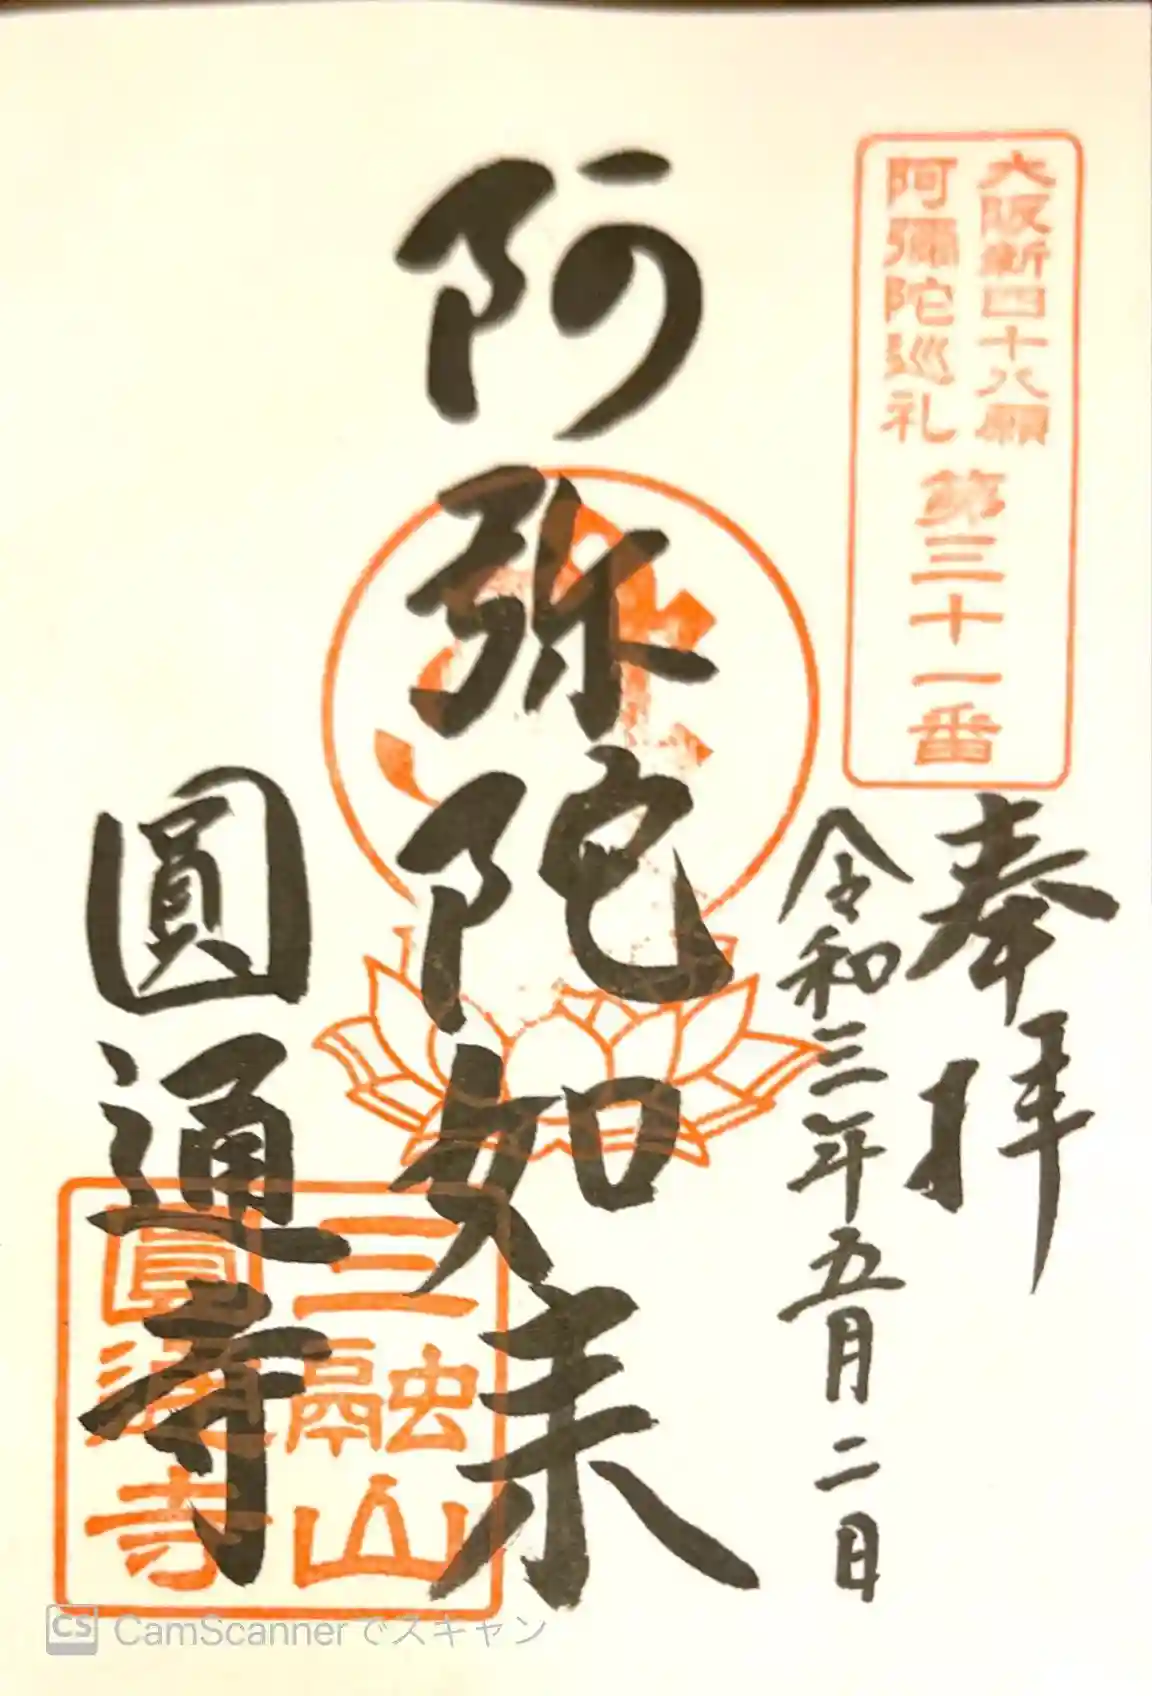 大阪新四十八願
阿彌陀巡礼
第三十一番
奉拝
令和三年五月二日
阿弥陀如来
圓通寺
三融山
圓通寺
CS CamScannerでスキャン